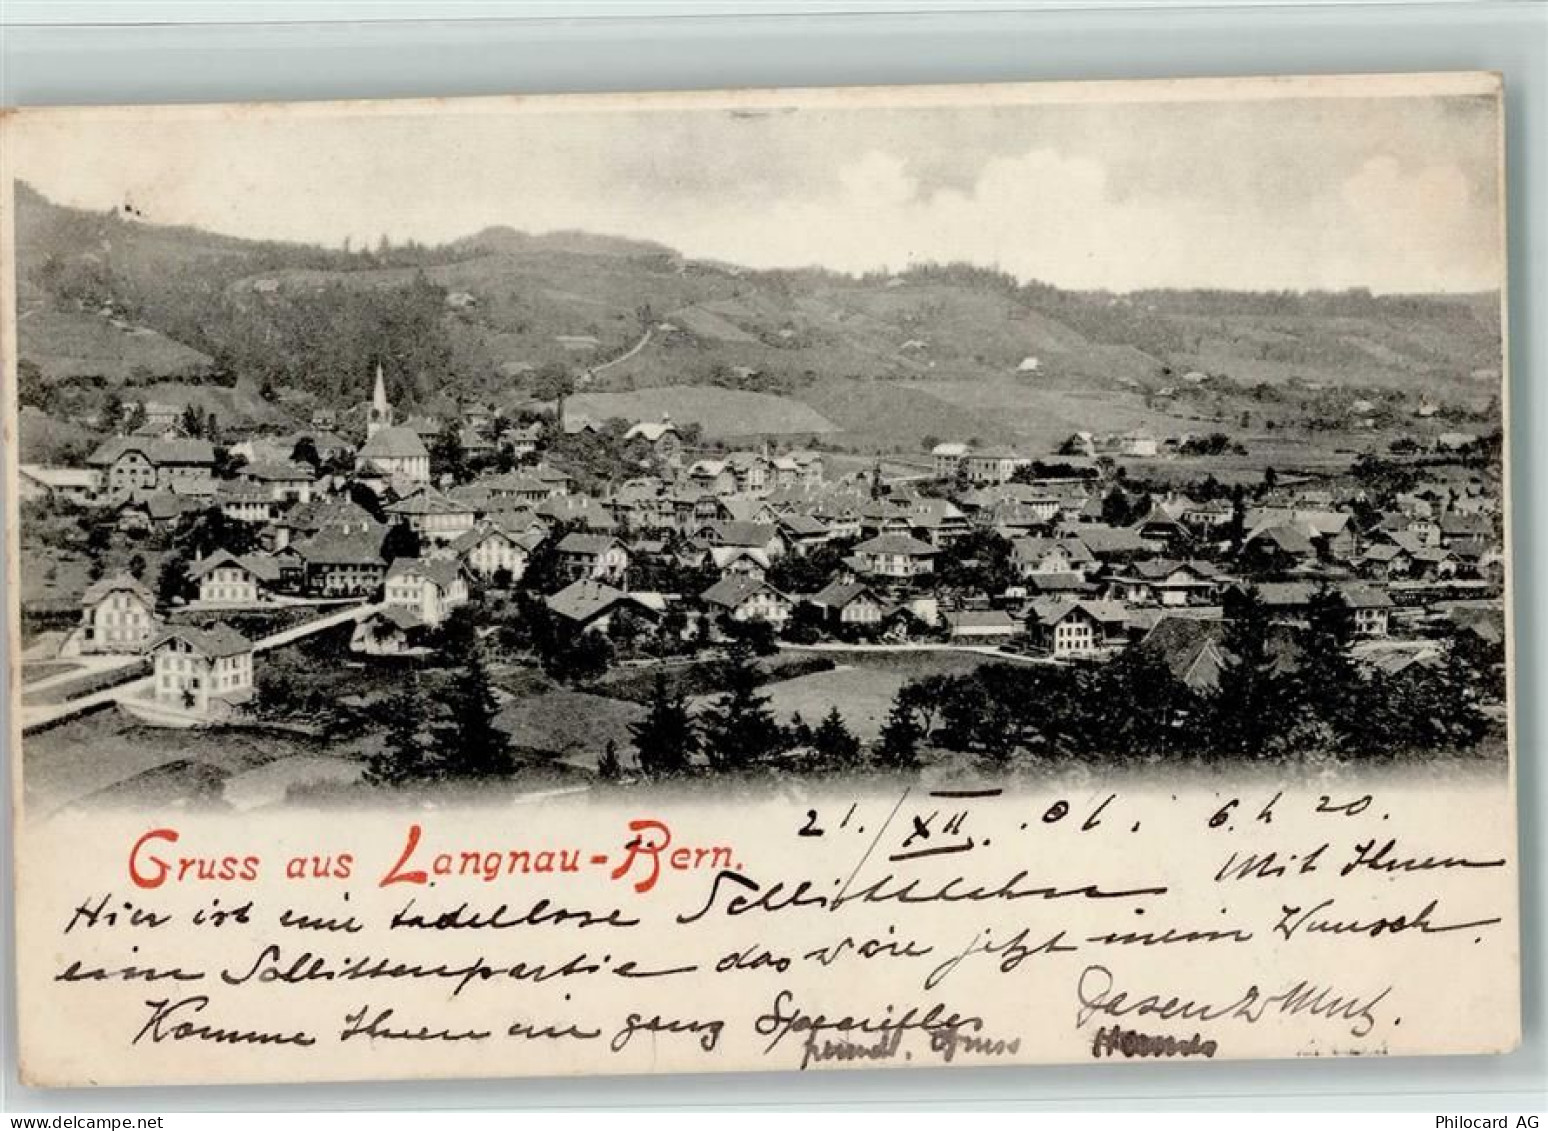 21. XII. 01. 6.h 20.
Gruss aus Langnau-Bern.
Hier ist eine tadellose Schlittbahn Mit Ihnen
eine Schlittenpartie das wäre jetzt mein Wunsch.
Komme Ihnen ein ganz Spezielles
freundl. Gruss
www.delcampe.net
Philocard AG